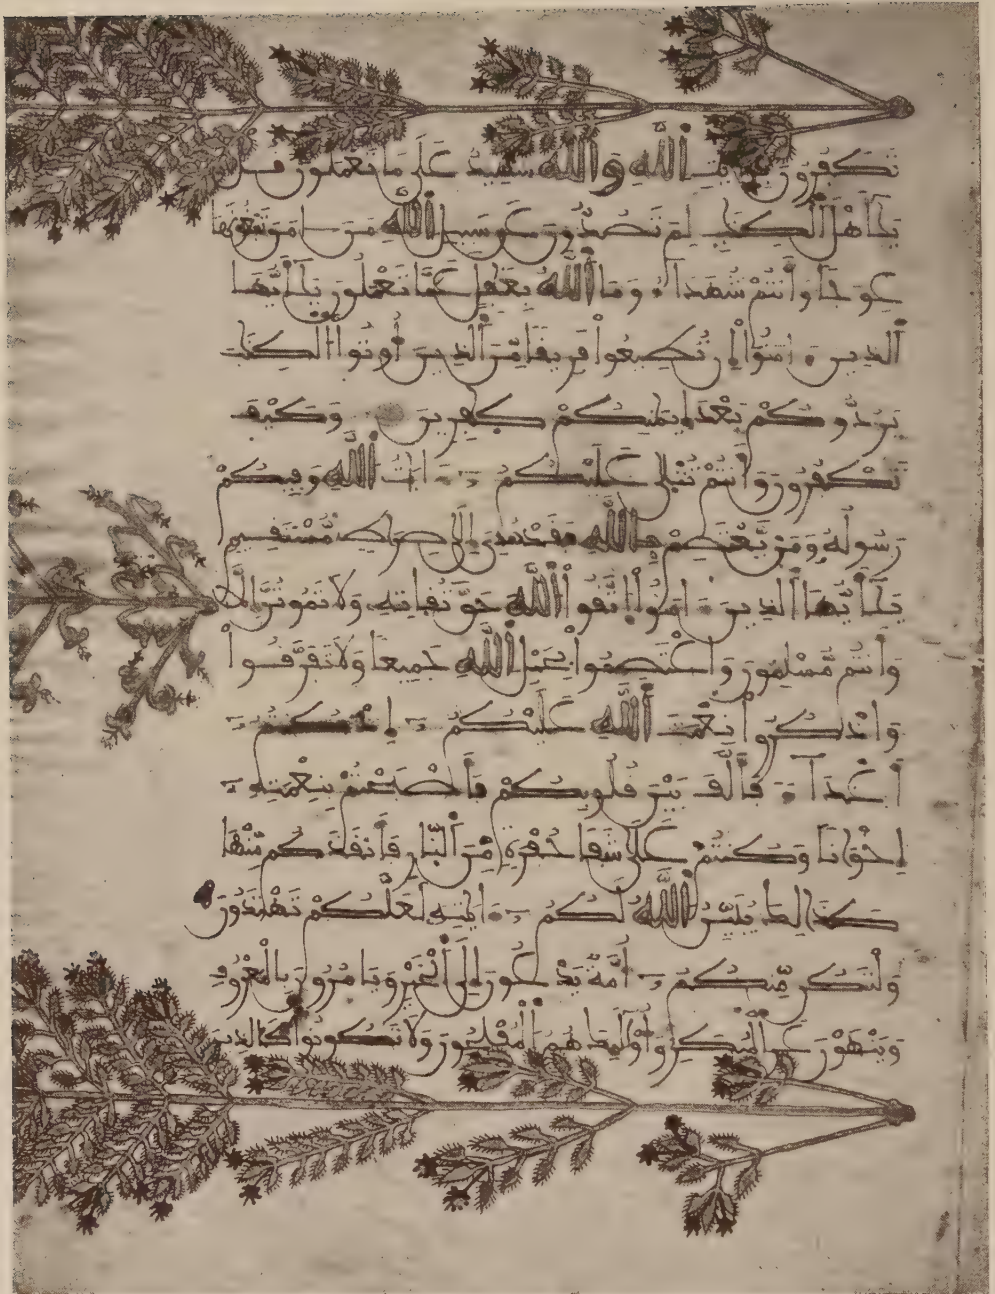 تَكْفُرُونَ بِـَٔايَٰتِ اَ۬للَّهِ وَاللَّهُ شَهِيدٌ عَلَىٰ مَا تَعْمَلُونَ قُلْ
يَٰأَهْلَ اَ۬لْكِتَٰبِ لِمَ تَصُدُّونَ عَن سَبِيلِ اِ۬للَّهِ مَنْ ءَامَنَ تَبْغُونَهَا
عِوَجًا وَأَنتُمْ شُهَدَآءُ وَمَا اَ۬للَّهُ بِغَٰفِلٍ عَمَّا تَعْمَلُونَ يَٰأَيُّهَا
اَ۬لذِينَ ءَامَنُوا إِن تُطِيعُوا فَرِيقًا مِّنَ اَ۬لذِينَ أُوتُوا اُ۬لْكِتَٰبَ
يَرُدُّوكُمْ بَعْدَ إِيمَٰنِكُمْ كَٰفِرِينَ وَكَيْفَ
تَكْفُرُونَ وَأَنتُمْ تُتْلَىٰ عَلَيْكُمُ ءَايَٰتُ اُ۬للَّهِ وَفِيكُمْ
رَسُولُهُ وَمَنْ يَّعْتَصِمْ بِاللَّهِ فَقَدْ هُدِيَ إِلَىٰ صِرَٰطٍ مُّسْتَقِيمٍ
يَٰأَيُّهَا اَ۬لذِينَ ءَامَنُوا اُ۪تَّقُوا اُ۬للَّهَ حَقَّ تُقَاتِهِ وَلَا تَمُوتُنَّ إِلَّا
وَأَنتُم مُّسْلِمُونَ وَاعْتَصِمُوا بِحَبْلِ اِ۬للَّهِ جَمِيعًا وَلَا تَفَرَّقُوا
وَاذْكُرُوا نِعْمَتَ اَ۬للَّهِ عَلَيْكُمُ إِذْ كُنتُمُ
أَعْدَآءً فَأَلَّفَ بَيْنَ قُلُوبِكُمْ فَأَصْبَحْتُمْ بِنِعْمَتِهِ
إِخْوَٰنًا وَكُنتُمْ عَلَىٰ شَفَا حُفْرَةٍ مِّنَ اَ۬لنَّارِ فَأَنقَذَكُم مِّنْهَا
كَذَٰلِكَ يُبَيِّنُ اُ۬للَّهُ لَكُمُ ءَايَٰتِهِ لَعَلَّكُمْ تَهْتَدُونَ
وَلْتَكُن مِّنكُمُ أُمَّةٌ يَدْعُونَ إِلَى اَ۬لْخَيْرِ وَيَامُرُونَ بِالْمَعْرُوفِ
وَيَنْهَوْنَ عَنِ اِ۬لْمُنكَرِ وَأُوْلَٰئِكَ هُمُ اُ۬لْمُفْلِحُونَ وَلَا تَكُونُوا كَالذِينَ